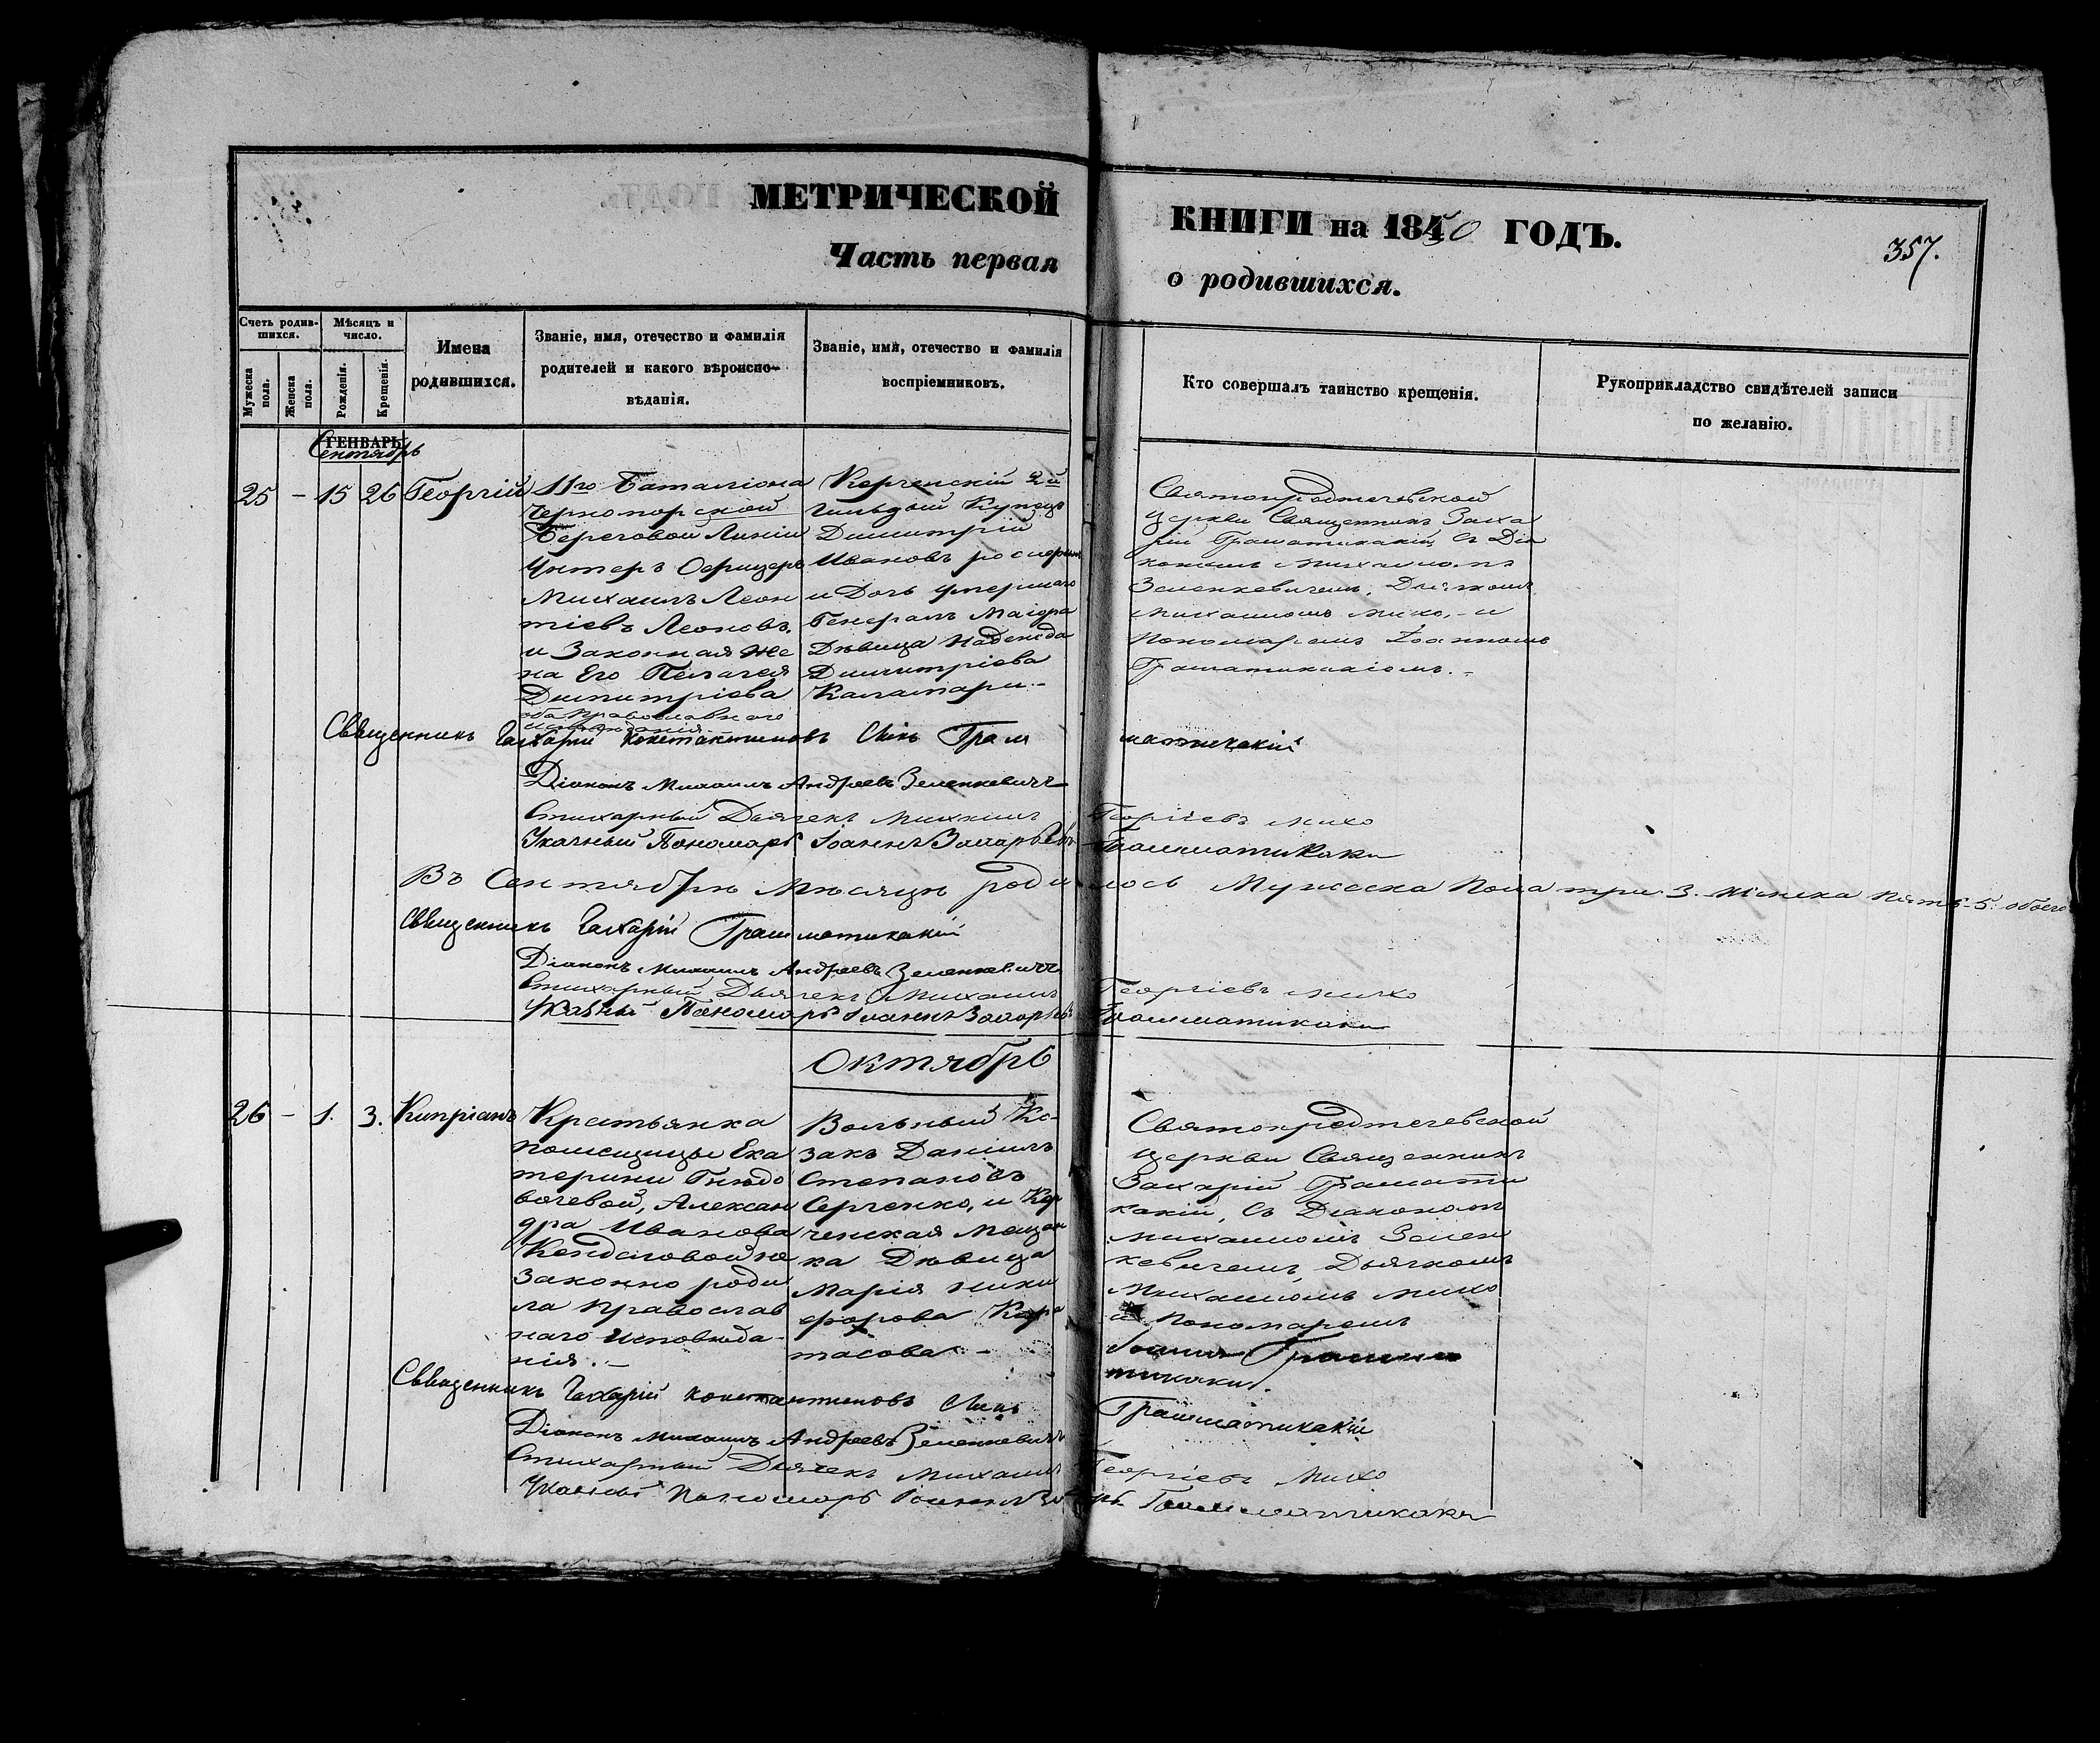 МЕТРИЧЕСКОЙ
КНИГИ на 1850 ГОДЪ.
357.
Часть первая
о родившихся.
Счетъ родив-
шихся.
Мужеска
пола.
Женска
пола.
Мѣсяцъ и
число.
Рожденія.
Крещенія.
Имена
родившихся.
Званіе, имя, отечество и фамилія
родителей и какого вѣроиспо-
вѣданія.
Званіе, имя, отечество и фамилія
воспріемниковъ.
Кто совершалъ таинство крещенія.
Рукоприкладство свидѣтелей записи
по желанію.
ГЕНВАРЬ
Сентябрь
25 - 15 26 Георгій
11го Баталіона
Черноморской
Береговой Линіи
Унтеръ Офицеръ
Михаилъ Леон
тіевъ Леоновъ,
и Законная Же
на Его Пелагея
Димитріева
оба православнаго
исповѣданія
Керченскій 2й
Гильдіи Купецъ
Димитрій
Ивановъ
и Дочь умершаго
Генералъ Маіора
Дѣвица Надежда
Димитріева
Каламари.-
Святопредтечевской
Церкви Священникъ Заха
рій Граматикакій, съ Діа
кономъ Михаиломъ
Зеленкевичемъ, Дьячкомъ
Михаиломъ Михо, и
Пономаремъ Іоанномъ
Священникъ Захарій Константиновъ Сынъ Грам
матикакій
Діаконъ Михаилъ Андреевъ Зеленкевичъ
Стихарный Дьячекъ Михаилъ
Георгіевъ Михо
Указный Пономарь Іоаннъ Захарьевъ
Грамматикаки
Въ Сентябрѣ Мѣсяцѣ родилось Мужеска Пола три 3. Женска пять-5. обоего
Священникъ Захарій Грамматикакій
Діаконъ Михаилъ Андреевъ Зеленкевичъ
Стихарный Дьячекъ Михаилъ
Георгіевъ Михо
Указный Пономарь Іоаннъ Захарьевъ
Грамматикаки
Октябрь
26 - 1. 3. Кипріанъ
Крестьянка
помещицы Ека
терины Гнѣдо
вочевой, Алексан
дра Иванова
не
Законно роди
ла православ
наго Исповѣда-
нія.-
Вольный Ко-
закъ Даніилъ
Степановъ
Сергенко, и Кер
ченская Мещан
ка Дѣвица
Марія Ники
форова Кара
тасова.-
Святопредтечевской
Церкви Священникъ
Захарій Грамати
какій, съ Діакономъ
Михаиломъ Зелен
кевичемъ, Дьячкомъ
Михаиломъ Михо
и Пономаремъ
Іоанномъ Грамма
тикаки.
Священникъ Захарій Константиновъ Сынъ
Грамматикакій
Діаконъ Михаилъ Андреевъ Зеленкевичъ
Стихарный Дьячекъ Михаилъ
Георгіевъ Михо
Указный Пономарь Іоаннъ Захарь
Грамматикаки